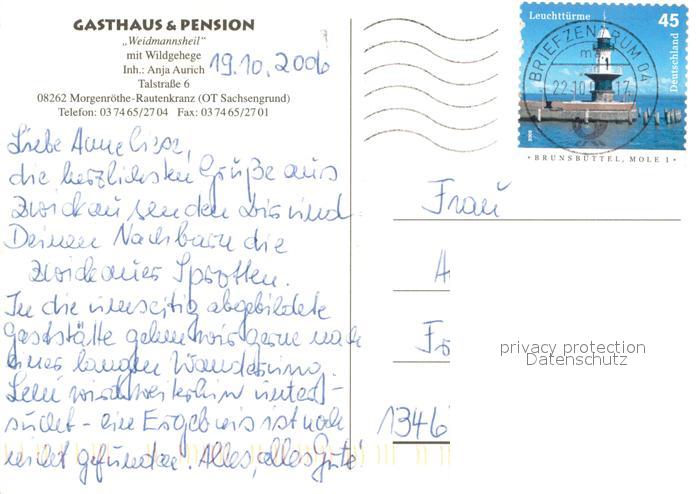 GASTHAUS & PENSION
„Weidmannsheil"
mit Wildgehege
Inh.: Anja Aurich
Talstraße 6
08262 Morgenröthe-Rautenkranz (OT Sachsengrund)
Telefon: 03 74 65/27 04 Fax: 03 74 65/27 01
19.10.2006
Liebe Anneliese,
die herzlichsten Grüße aus
Zwickau senden Dir und
Deinen Nachbarn die
Zwickauer Sprotten.
In die umseitig abgebildete
Gaststätte gehen wir gerne nach
einer langen Wanderung.
Leni wird weiterhin unter-
sucht - ein Ergebnis ist noch
nicht gefunden. Alles, alles Gute
Leuchttürme 45
Deutschland
BRIEFZENTRUM 04
22.10. 17
BRUNSBÜTTEL, MOLE 1
Frau
A
Fr
1346
privacy protection
Datenschutz